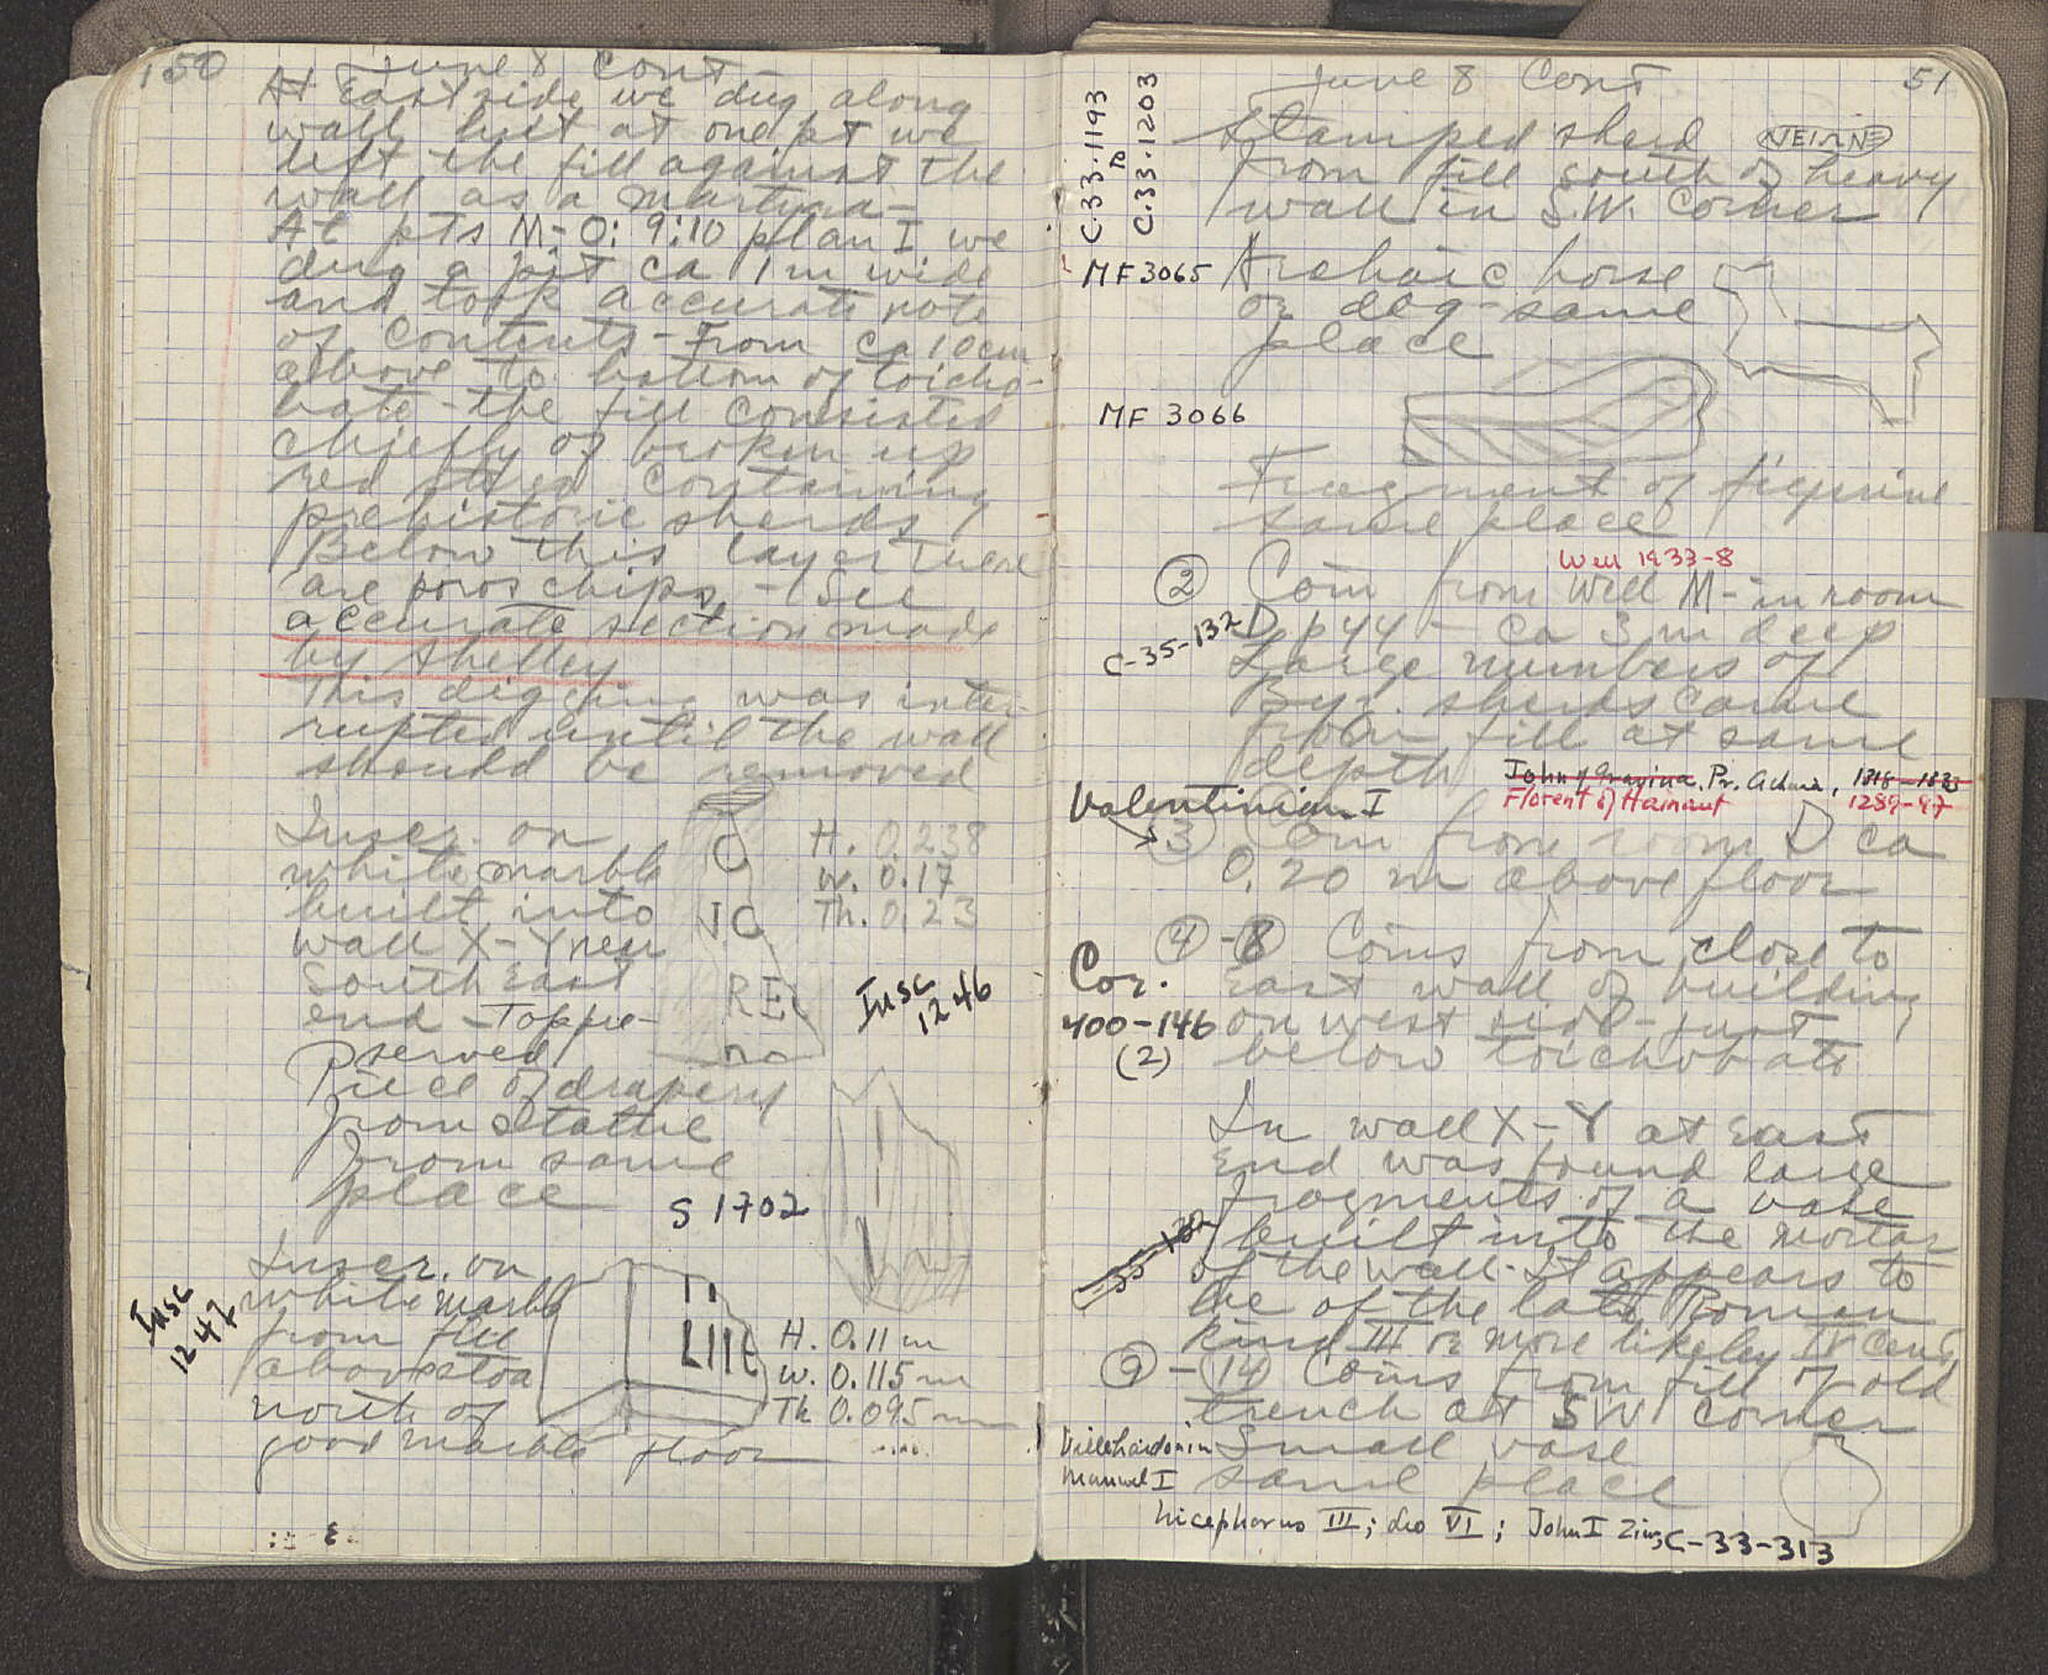 150
June 8 Cont
At East side we dug along
wall but at one pt we
left the fill against the
wall as a martyra -
At pts M-O: 9:10 plan I we
dug a pit ca 1m wide
and took accurate note
of contents - From ca 10cm
above to bottom of toicho-
bate - the fill consisted
chiefly of broken up
red containing
prehistoric sherds
Below this layer there
are poros chips - See
accurate section made
by Shelley
This digging was inter-
rupted until the wall
should be removed
Inscr. on
white marble
built into
wall X-Y near
South East
end - Top pre-
served
O
IC
RE
H. 0.238
W. 0.17
Th. 0.23
Insc
1246
Piece of drapery
from statue
from same
place
S 1702
Insc
1247
Inscr. on
white marble
from fill
above stoa
north of
good marble floor
H. 0.11 m
W. 0.115 m
Th 0.095 m
51
June 8 Cont
C.33.1193
to
C.33.1203
Stamped sherd
from fill south of heavy
wall in S.W. Corner
MF 3065
Archaic horse
or dog - same
place
MF 3066
Fragment of figurine
same place
Well 1933-8
② Coin from Well M - in room
D p 44 - ca 3 m deep
C-35-132
Large numbers of
Byz. sherds came
from fill at same
depth
John of Gravina, Pr. Achaia, 1318-1333
Florent of Hainaut 1289-97
Valentinian I
③ Coin from room D ca
0.20 m above floor
④-⑧ Coins from close to
Cor.
East wall of building
400-146
on west side - just
(2)
below toichobate
In wall X-Y at East
end was found large
fragments of a vase
built into the mortar
of the wall. It appears to
be of the late Roman
kind III or more likely IV Cent
⑨-⑭ Coins from fill of old
trench at SW corner
Villehardouin
Manuel I
Small vase
same place
Nicephorus III; Leo VI; John I Zim;
C-33-313